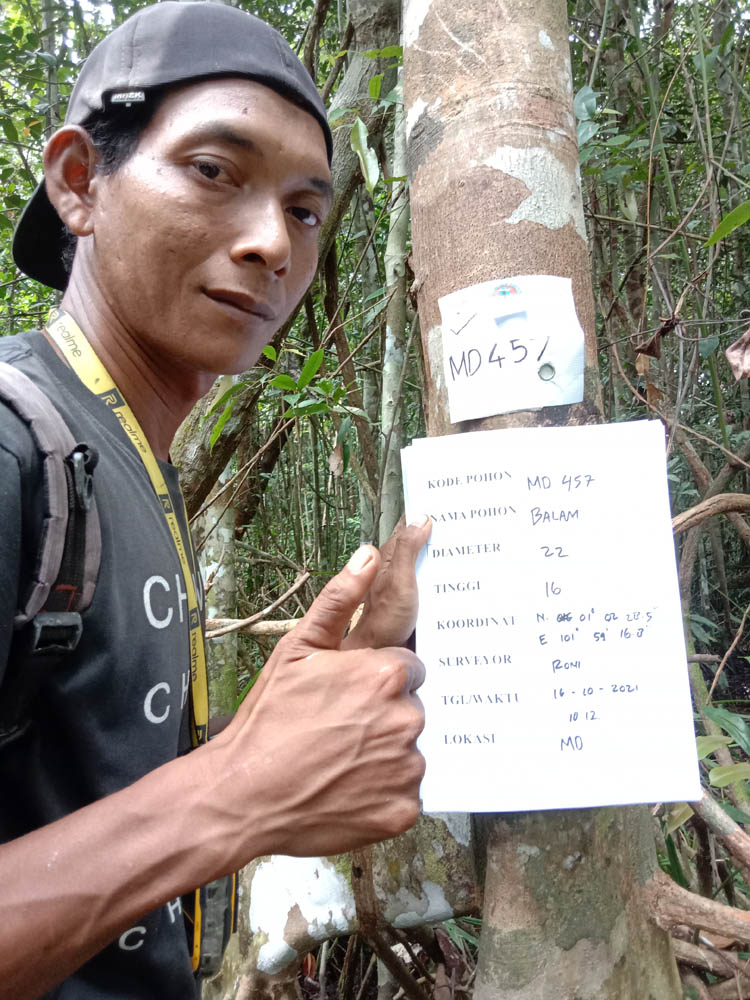 MD 457
KODE POHON MD 457
NAMA POHON BALAM
DIAMETER 22
TINGGI 16
KOORDINAT N. 01° 02' 28.5"
E 101° 59' 16.8"
SURVEYOR RONI
TGL/WAKTU 16-10-2021
10 12
LOKASI MD
realme
R realme
R realme
R realme
CH
CH
C